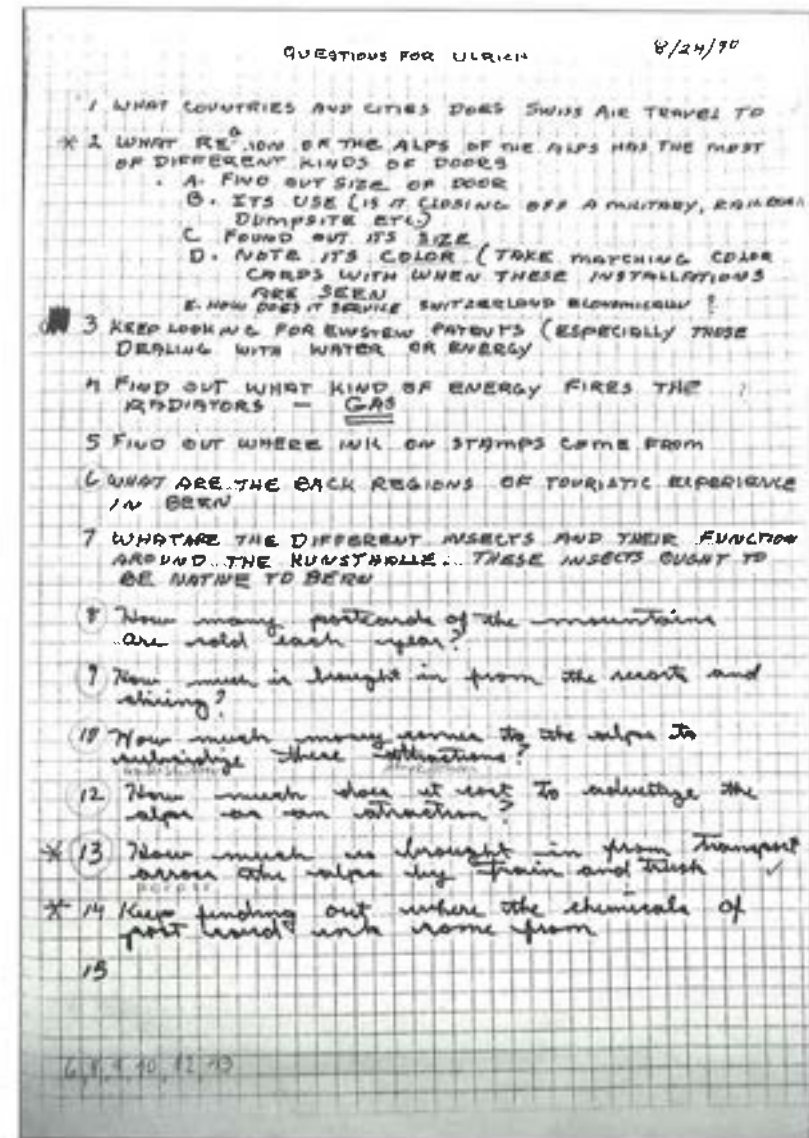 QUESTIONS FOR ULRICH 8/24/90
1 WHAT COUNTRIES AND CITIES DOES SWISS AIR TRAVEL TO
* 2 WHAT REGION OF THE ALPS OF THE ALPS HAS THE MOST
OF DIFFERENT KINDS OF DOORS
A. FIND OUT SIZE OF DOOR
B. ITS USE (IS IT CLOSING OFF A MILITARY, RAILROAD
DUMPSITE ETC.)
C FOUND OUT ITS SIZE
D. NOTE ITS COLOR (TAKE MATCHING COLOR
CARDS WITH WHEN THESE INSTALLATIONS
ARE SEEN
E. HOW DOES IT SERVICE SWITZERLAND ECONOMICALLY ?
3 KEEP LOOKING FOR EINSTEIN PATENTS (ESPECIALLY THOSE
DEALING WITH WATER OR ENERGY
4 FIND OUT WHAT KIND OF ENERGY FIRES THE ?
RADIATORS — GAS
5 FIND OUT WHERE INK ON STAMPS COME FROM
6 WHAT ARE THE BACK REGIONS OF TOURISTIC EXPERIENCE
IN BERN
7 WHAT ARE THE DIFFERENT INSECTS AND THEIR FUNCTION
AROUND THE KUNSTHALLE. THESE INSECTS OUGHT TO
BE NATIVE TO BERN
8 How many postcards of the mountains
are sold each year?
9 How much is brought in from the resorts and
skiing?
10 How much money comes to the alps to
subsidize these attractions?
12 How much does it cost to advertize the
alps as an atraction?
* 13 How much is brought in from transport
across the alps by train and truck ✓
* 14 Keep finding out where the chemicals of
post card ink come from
15
6, 8, 9, 10, 12, 13